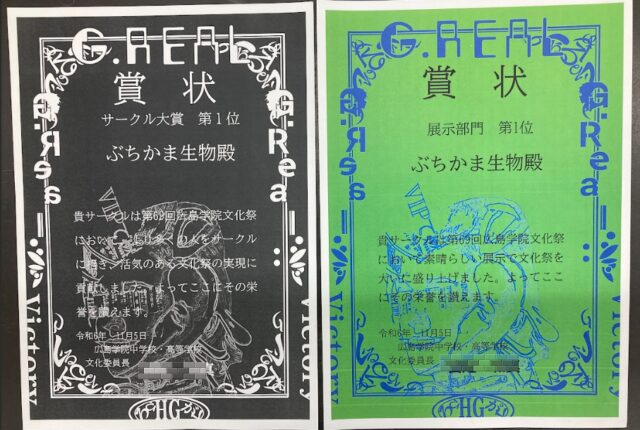 G.REAL
G.Real
G.Real
賞状
サークル大賞 第1位
ぶちかま生物殿
VIP
貴サークルは第69回広島学院文化祭
において、より多くの人をサークル
に招き、活気のある文化祭の実現に
貢献しました。よってここにその栄
誉を讃えます。
令和6年 11月5日
広島学院中学校・高等学校
文化委員長
Victory
Victory
HG
G.REAL
G.Real
G.Real
賞状
展示部門 第1位
ぶちかま生物殿
VIP
貴サークルは第69回広島学院文化祭
において素晴らしい展示で文化祭を
大いに盛り上げました。よってここ
にその栄誉を讃えます。
令和6年 11月5日
広島学院中学校・高等学校
文化委員長
Victory
Victory
HG